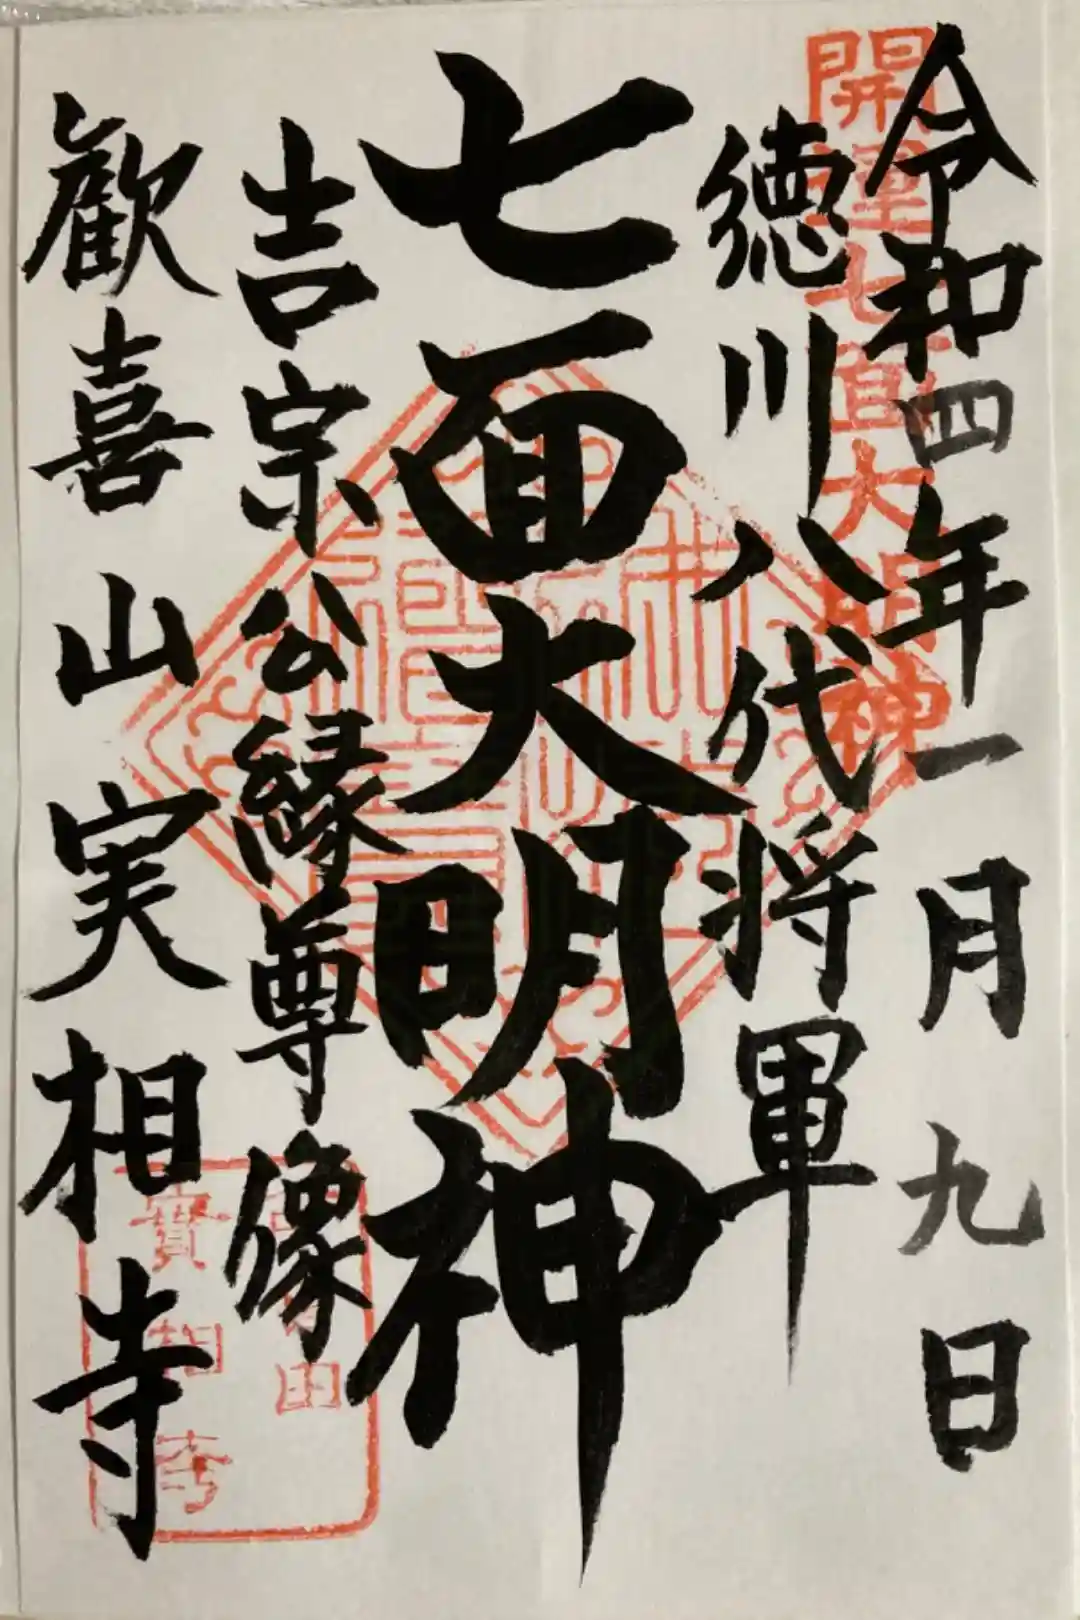 令和四年一月九日
開運七面大明神
徳川八代将軍
七面大明神
吉宗公縁尊像
歓喜山実相寺
實相寺